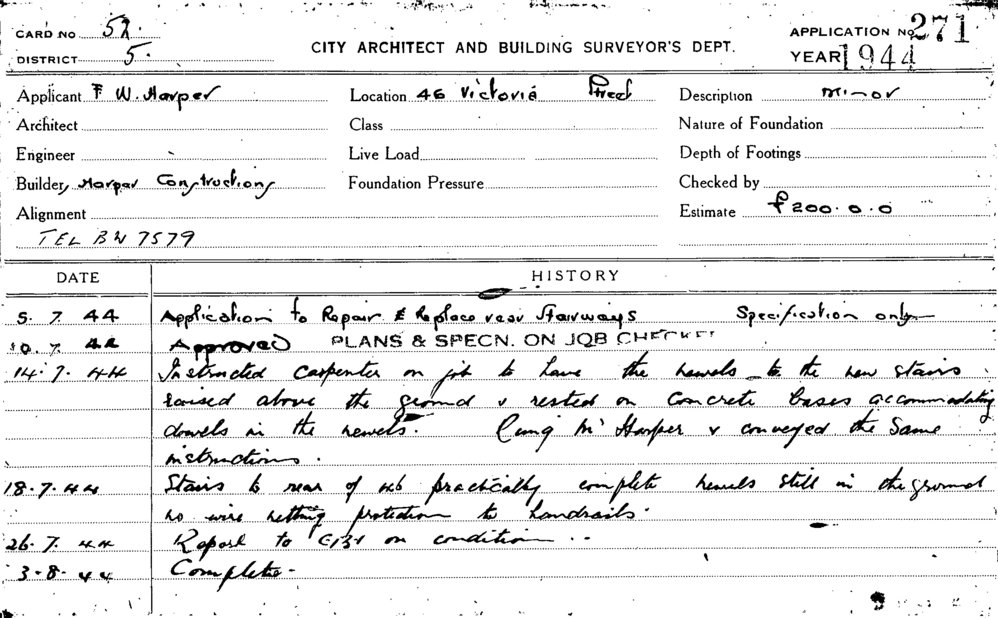 CARD NO 52.
DISTRICT 5.
CITY ARCHITECT AND BUILDING SURVEYOR'S DEPT.
APPLICATION No. 271
YEAR 1944
Applicant F W. Harper
Location 46 Victoria Street
Description minor
Architect
Class
Nature of Foundation
Engineer
Live Load
Depth of Footings
Builder, Harper Constructions
Foundation Pressure
Checked by
Alignment
Estimate £200.0.0
TEL BW 7579
DATE
HISTORY
5. 7. 44 Application to Repair & Replace rear Stairways Specification only
10. 7. 44 Approved PLANS & SPECN. ON JOB CHECKED
14. 7. 44 Instructed Carpenter on job to have the newels to the new stairs
raised above the ground & rested on Concrete bases accommodating
dowels in the newels. Rung Mr Harper & conveyed the same
instructions.
18. 7. 44 Stairs to rear of 46 practically complete newels still in the ground
no wire netting protection to handrails.
26. 7. 44 Report to on condition
3. 8. 44 Complete.